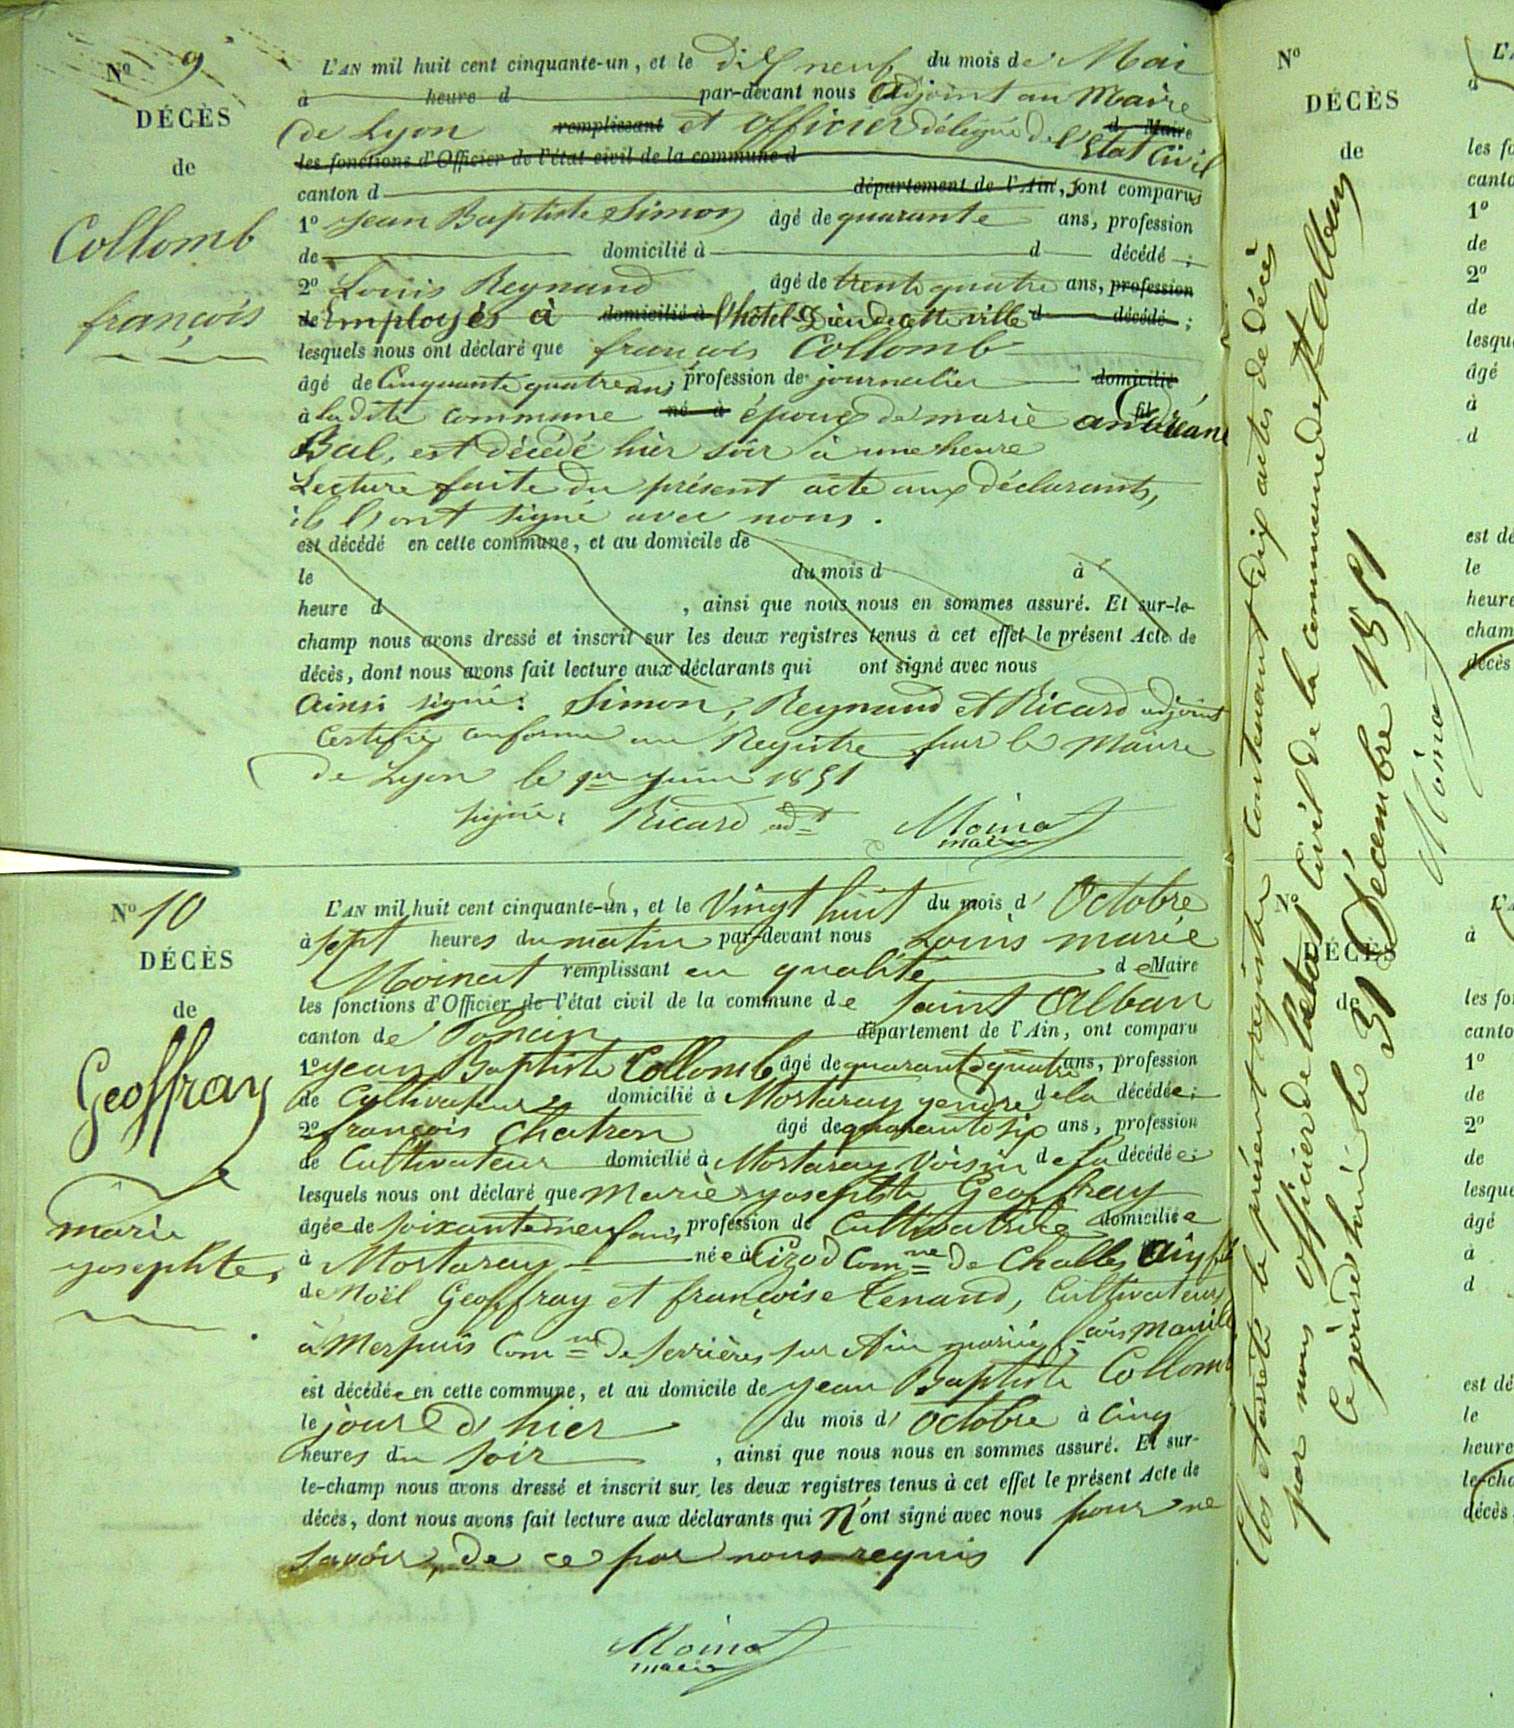 N° 9
DÉCÈS
de
Collomb
françois
L'AN mil huit cent cinquante-un, et le dix neuf du mois de Mai
à heure d par-devant nous adjoint au Maire
de Lyon remplissant et officier délégué de l'Etat Civil d Maire
les fonctions d'Officier de l'état civil de la commune d
canton d département de l'Ain, sont comparus
1° Jean Baptiste Simon âgé de quarante ans, profession
de domicilié à d décédé ;
2° Louis Reynaud âgé de trente quatre ans, profession
de Employés à domicilié à l'hôtel Dieu de cette ville d décédé ;
lesquels nous ont déclaré que françois Collomb
âgé de Cinquante quatre ans profession de journalier domicilié
à ladite commune né à époux de marie andréane fil
Bal, est décédé hier soir à une heure
Lecture faite du présent acte aux déclarants,
ils l'ont signé avec nous.
est décédé en cette commune, et au domicile de
le du mois d à
heure d , ainsi que nous nous en sommes assuré. Et sur-le-
champ nous avons dressé et inscrit sur les deux registres tenus à cet effet le présent Acte de
décès, dont nous avons fait lecture aux déclarants qui ont signé avec nous
Ainsi signé: Simon, Reynaud et Ricard adjoint
Certifié conforme au Registre par le Maire
de Lyon le 1er juin 1851
signé: Ricard adt
Moinat
maire
N° 10
DÉCÈS
de
Geoffray
marie
josephte,
L'AN mil huit cent cinquante-un, et le Vingt huit du mois d' Octobre
à sept heures du matin par-devant nous Louis marie
Moinat remplissant en qualité de Maire
les fonctions d'Officier de l'état civil de la commune de saint Alban
canton de Poncin département de l'Ain, ont comparu
1° jean Baptiste Collomb âgé de quarante quatre ans, profession
de Cultivateur domicilié à Mortaray gendre de la décédée ;
2° françois Chatron âgé de quarante six ans, profession
de Cultivateur domicilié à Mortaray Voisin de la décédée ;
lesquels nous ont déclaré que marie josephte Geoffray
âgée de soixante neuf ans, profession de Cultivatrice domiciliée
à Mortaray née à Cizod Comne de Challes Ain fil
de Noël Geoffray et françoise Tenand, Cultivateurs
à Merpuis Comne de serrières sur Ain mariée
est décédée en cette commune, et au domicile de jean Baptiste Collomb
le jour d'hier du mois d' octobre à Cinq
heures du soir , ainsi que nous nous en sommes assuré. Et sur-
le-champ nous avons dressé et inscrit sur les deux registres tenus à cet effet le présent Acte de
décès, dont nous avons fait lecture aux déclarants qui n'ont signé avec nous pour ne
savoir, de ce par nous requis
Moinat
maire
Clos et arrêté le présent registre contenant dix actes de décès
par nous officier de l'état Civil de la commune de St Alban
Ce jourd'hui le 31 Décembre 1851
Moinat
N°
DÉCÈS
de
L'A
à
les fo
canto
1°
de
2°
de
lesqu
âgé
à
d
est dé
le
heure
cham
décès
N°
DÉCÈS
de
L'A
à
les fo
canto
1°
de
2°
de
lesque
âgé
à
d
est dé
le
heure
le-cha
décès,